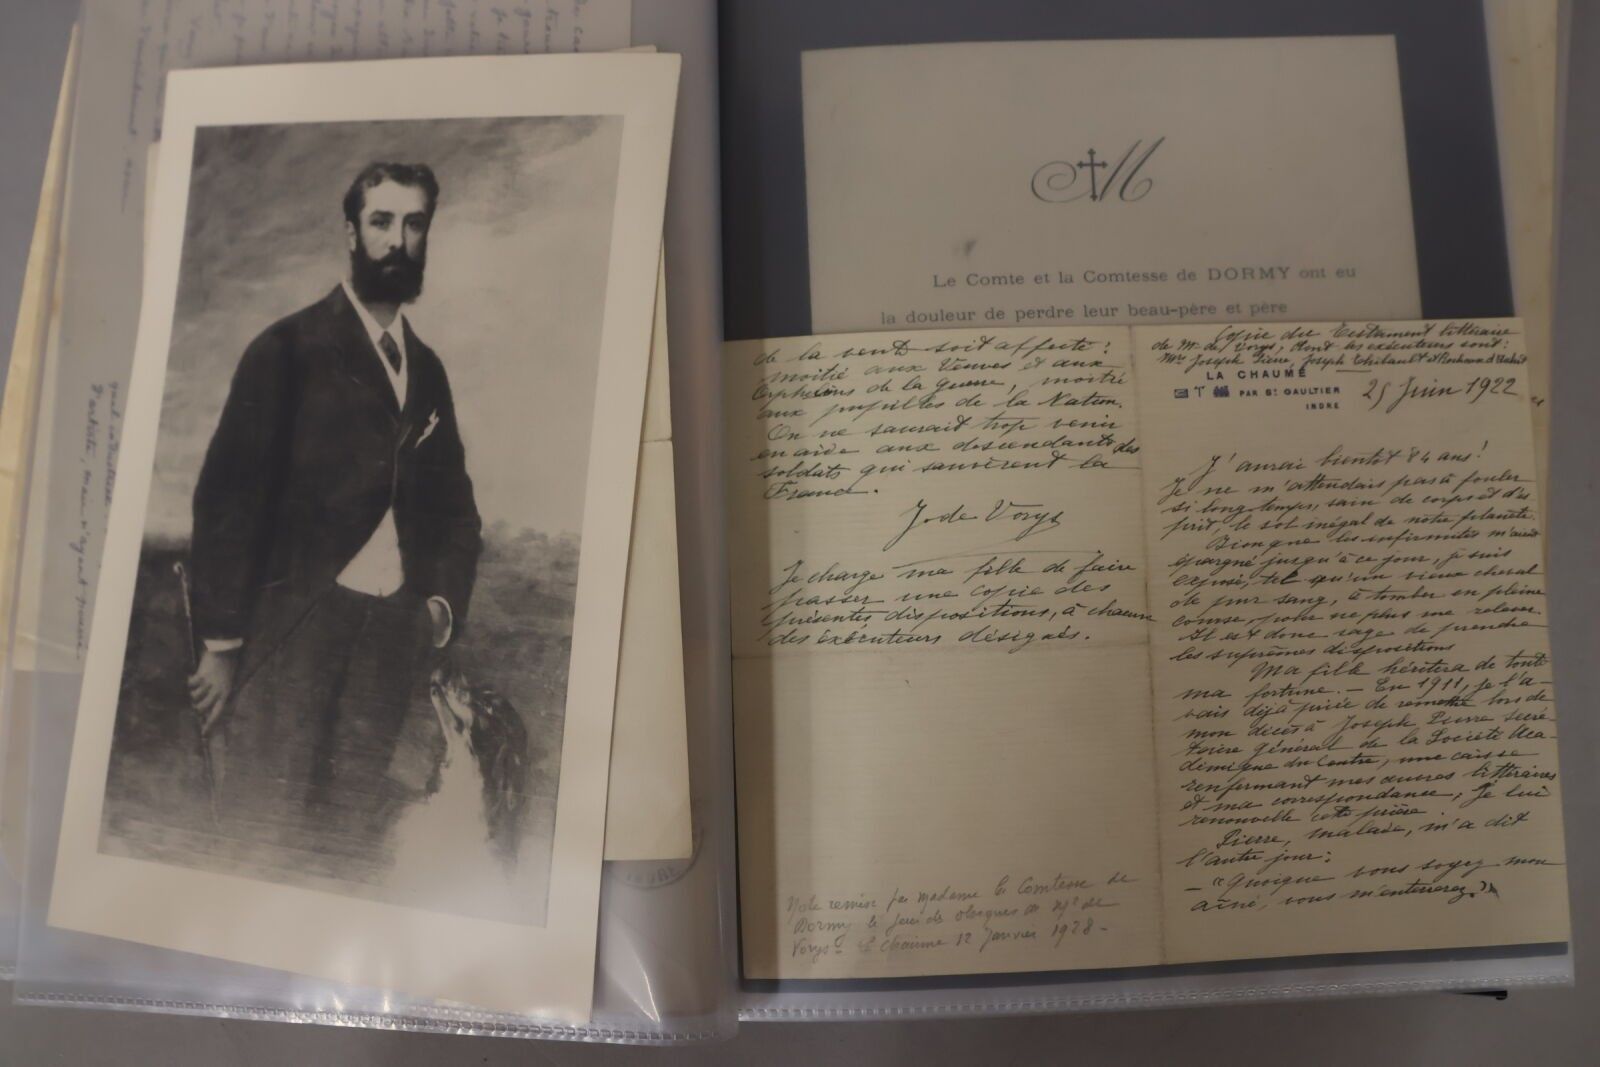 Le Comte et la Comtesse de DORMY ont eu
la douleur de perdre leur beau-père et père
de la vente soit affecté :
moitié aux Veuves et aux
Orphelins de la guerre, moitié
aux pupilles de la Nation.
On ne saurait trop venir
en aide aux descendants des
soldats qui sauvèrent la
France.
J. de Vorys
Je charge ma fille de faire
passer une copie des
présentes dispositions, à chacun
des exécuteurs désignés.
Note remise par Madame la Comtesse de
Dormy le jour des obsèques de Mr de
Vorys - La Chaume 12 Janvier 1928 -
Copie du Testament littéraire
de Mr de Vorys, dont les exécuteurs sont :
Mrs Joseph Pierre, Joseph Thibault et
LA CHAUME
PAR St GAULTIER
INDRE
25 Juin 1922
J'aurai bientôt 84 ans !
Je ne m'attendais pas à fouler
si longtemps, sain de corps et d'es
prit, le sol inégal de notre planète.
Bien que les infirmités m'aient
épargné jusqu'à ce jour, je suis
exposé, tel qu'un vieux cheval
de pur sang, à tomber en pleine
course, pour ne plus me relever.
Il est donc sage de prendre
les suprêmes dispositions
Ma fille héritera de toute
ma fortune. - En 1911, je l'a-
vais déjà priée de remettre lors de
mon décès à Joseph Pierre secré-
taire général de la Société Aca-
démique du Centre, une caisse
renfermant mes œuvres littéraires
et ma correspondance ; Je lui
renouvelle cette prière
Pierre, malade, m'a dit
l'autre jour :
- "Quoique vous soyez mon
aîné, vous m'enterrerez."